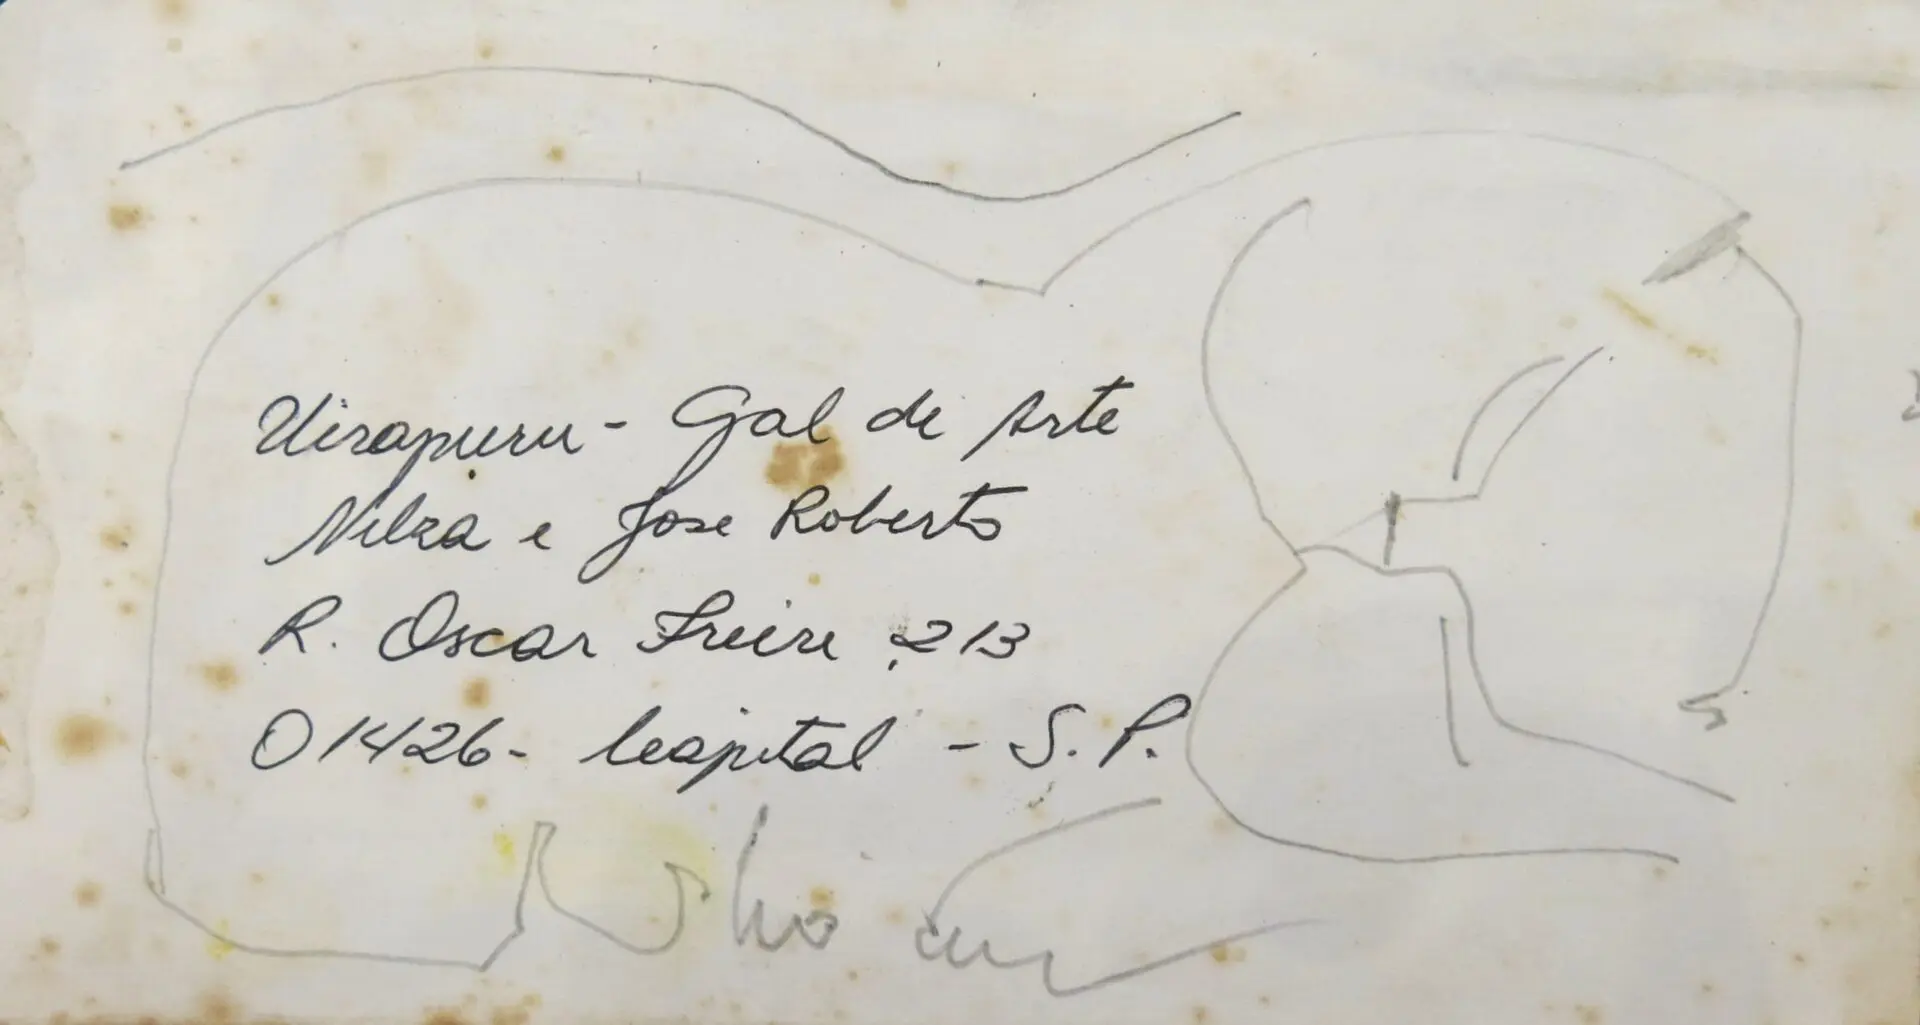 Uirapuru - Gal de Arte
Nilza e Jose Roberto
R. Oscar Freire, 213
01426 - Capital - S. P.